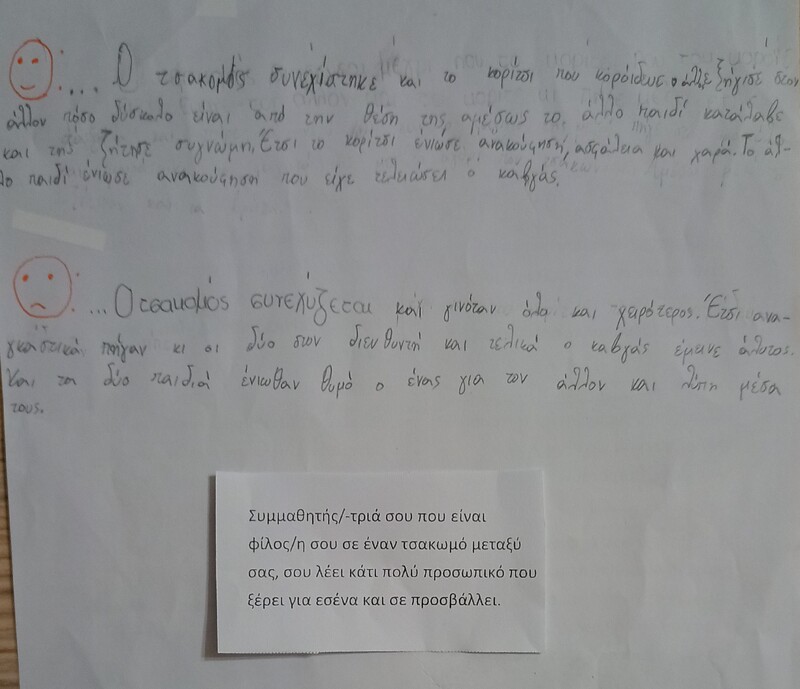 .... Ο τσακομός συνεχίστηκε και το κορίτσι που κορόιδευε ο άλλος ξήγισε στον
άλλον πόσο δύσκολο είναι από την θέση της αμέσως το άλλο παιδί κατάλαβε
και της ζήτησε συγνώμη. Έτσι το κορίτσι ένιωσε ανακούφηση, ασφάλεια και χαρά. Το άλ-
λο παιδί ένιωσε ανακούφηση που είχε τελειώσει ο καβγάς.
... Ο τσακομός συνεχύζεται και γινόταν όλο και χειρότερος. Έτσι ανα-
γκαστικά πήγαν κι οι δύο στον διευθυντή και τελικά ο καβγάς έμεινε άλυτος.
Και τα δύο παιδιά ένιωθαν θυμό ο ένας για τον άλλον και λύπη μέσα
τους.
Συμμαθητής/-τριά σου που είναι
φίλος/η σου σε έναν τσακωμό μεταξύ
σας, σου λέει κάτι πολύ προσωπικό που
ξέρει για εσένα και σε προσβάλλει.